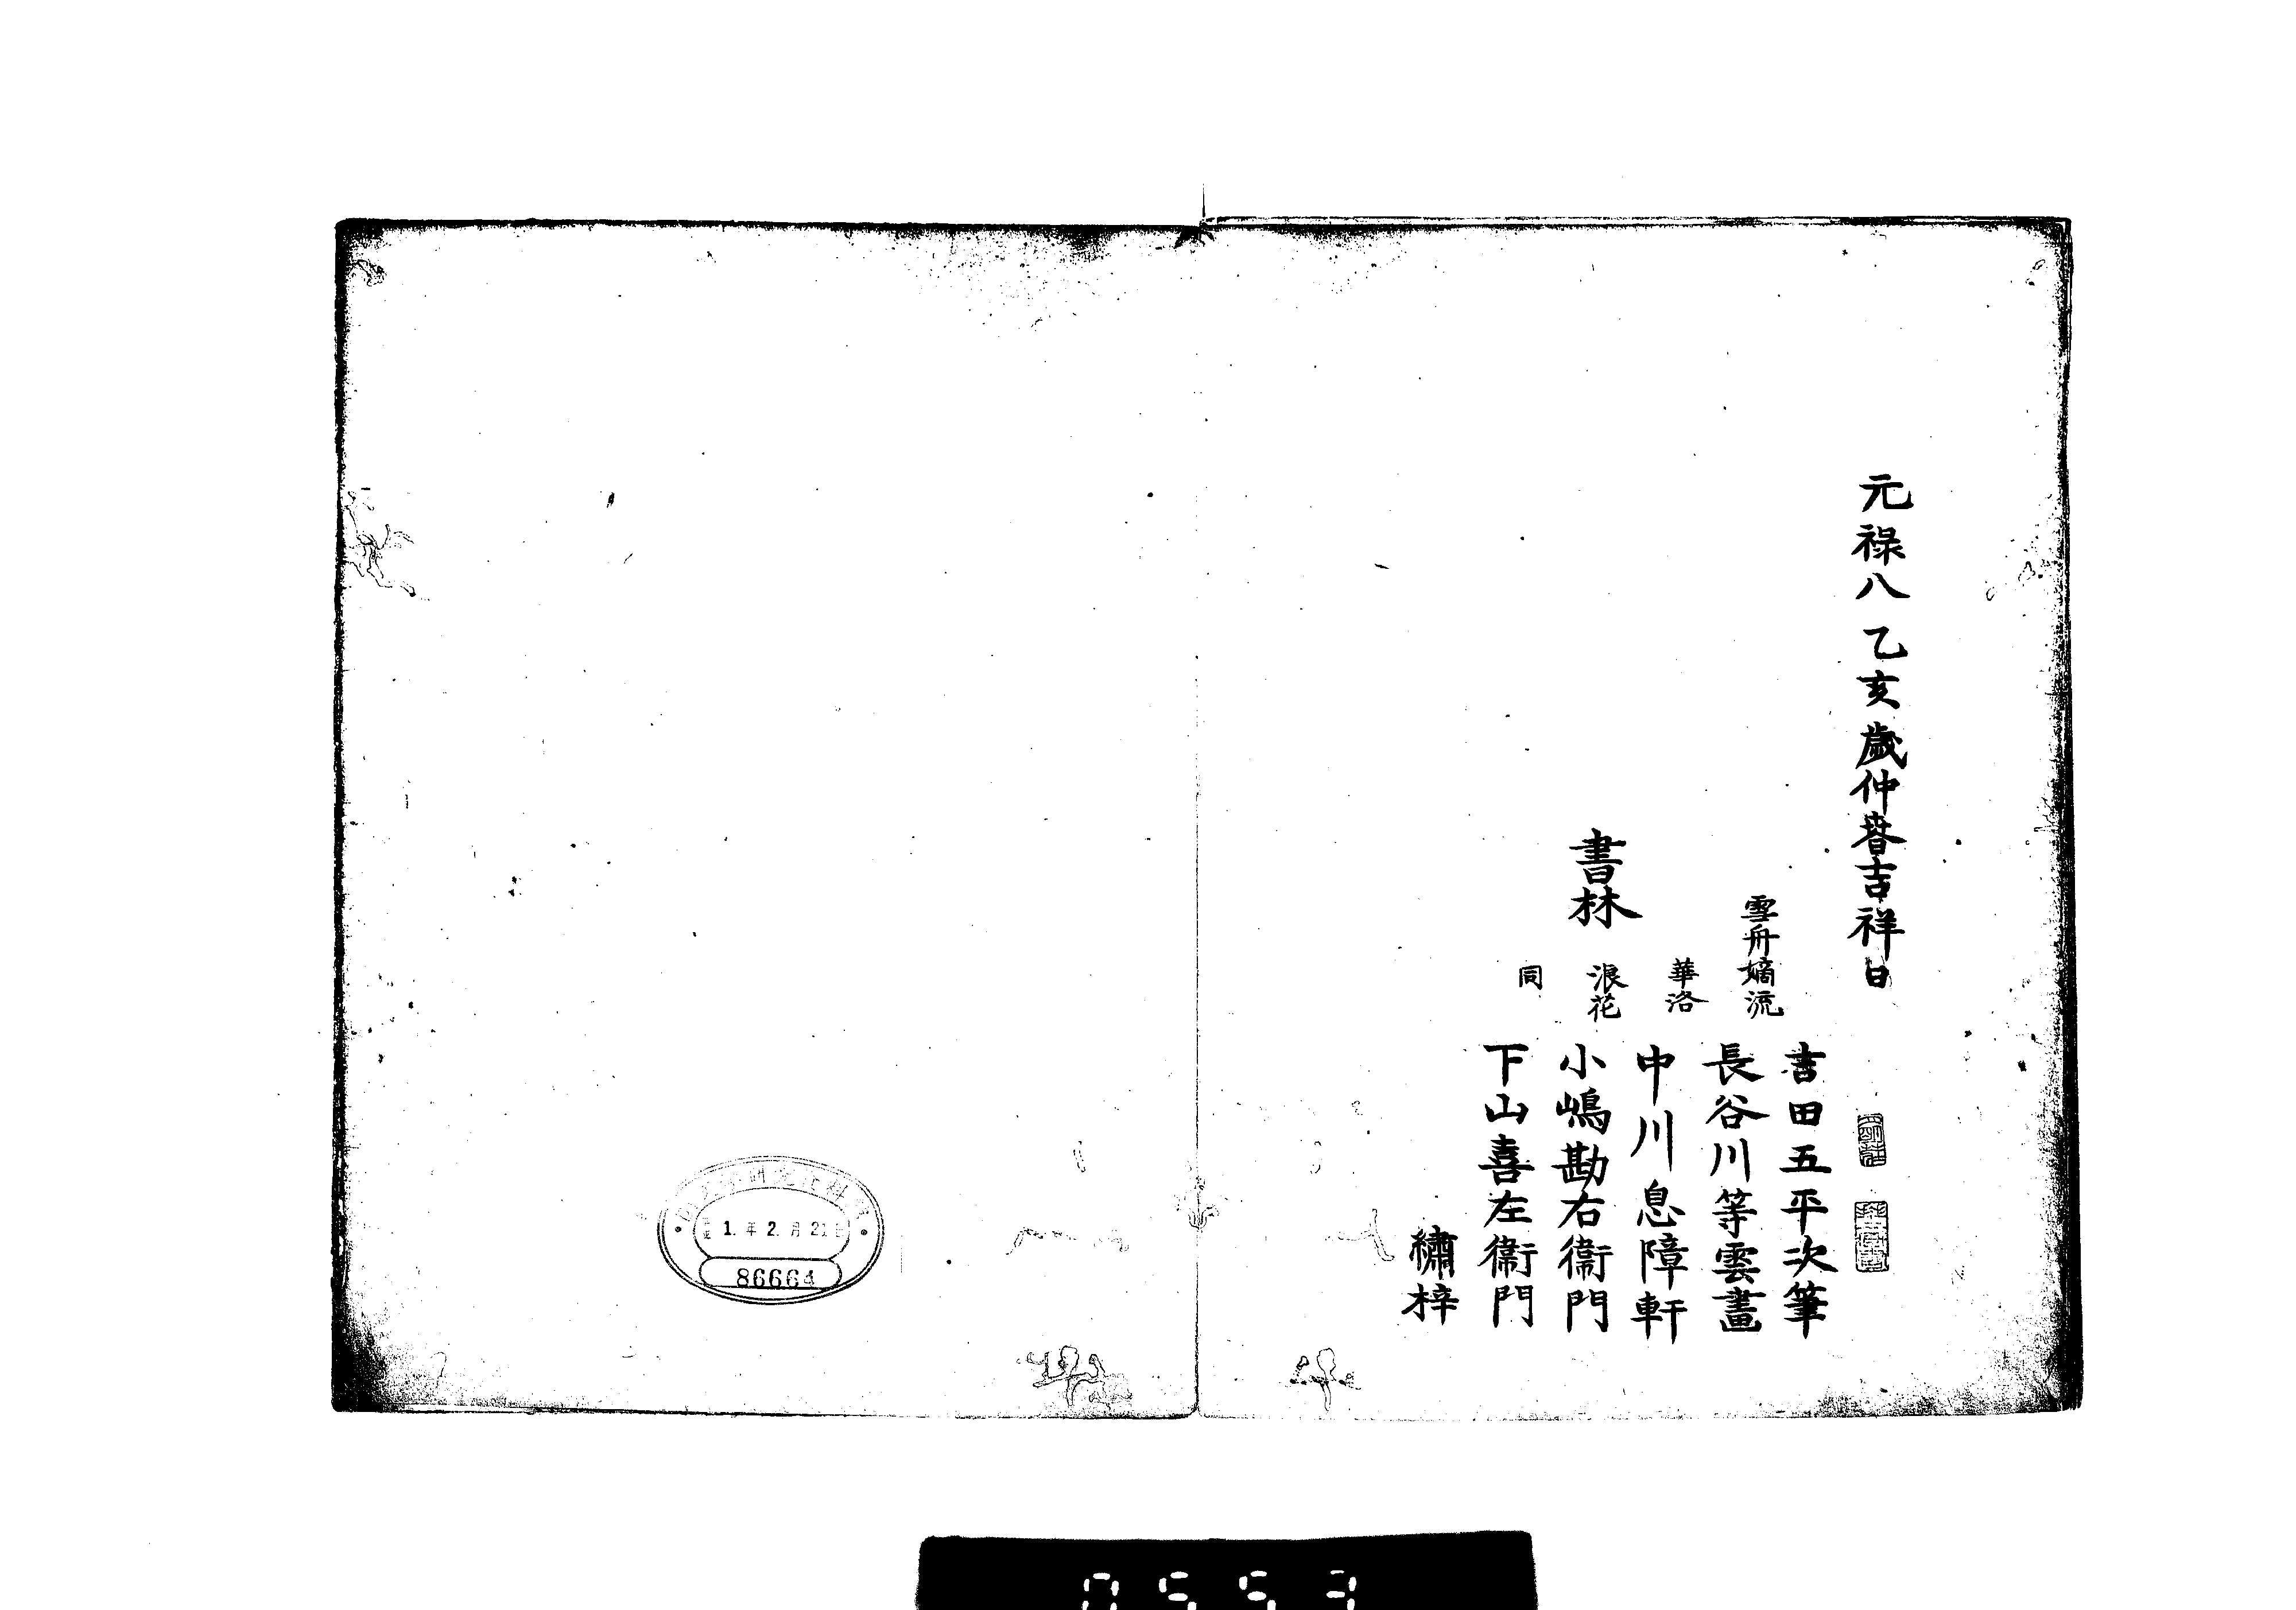 元禄八乙亥歳仲春吉祥日
吉田五平次筆
雪舟嫡流 長谷川等雲畫
華洛 中川息障軒
書林 浪花 小嶋勘右衞門
同 下山喜左衞門
繡梓
1. 年 2. 月 21
86664